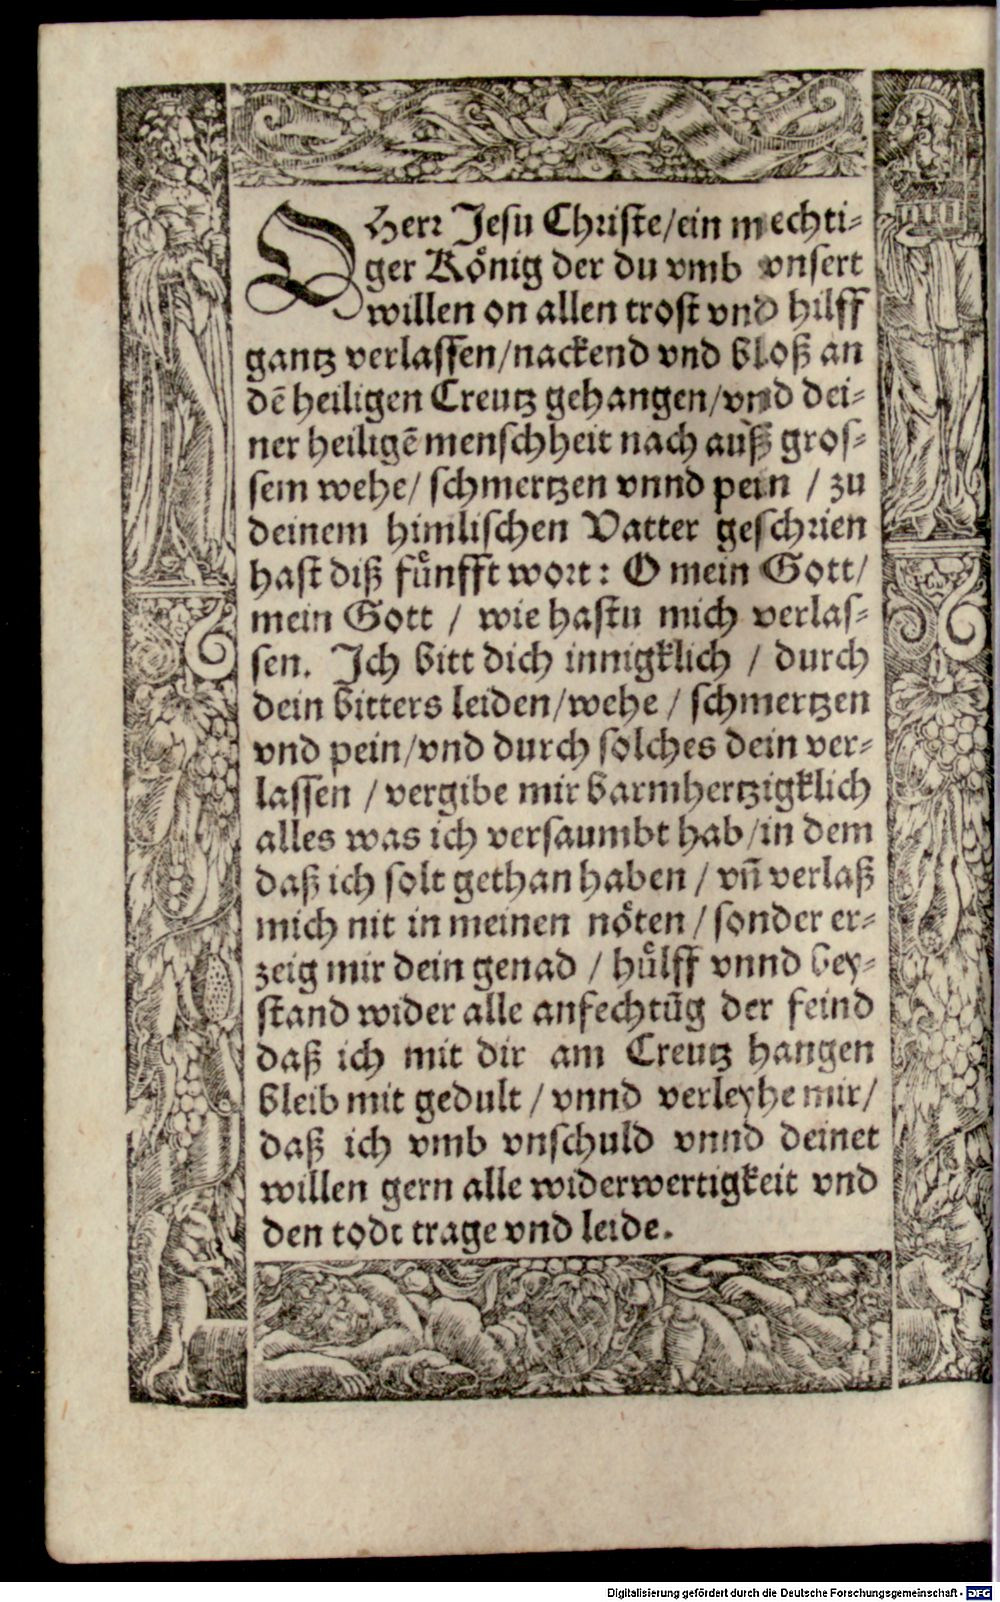 O Herr Jesu Christe/ein mechti-
ger Koͤnig der du vmb vnsert
willen on allen trost vnd hilff
gantz verlassen/nackend vnd bloß an
dē heiligen Creutz gehangen/vnd dei-
ner heiligē menschheit nach auß gros-
sem wehe/ schmertzen vnnd pein / zu
deinem himlischen Vatter geschrien
hast diß fuͤnfft wort: O mein Gott/
mein Gott / wie hastu mich verlas-
sen. Ich bitt dich innigklich / durch
dein bitters leiden/wehe / schmertzen
vnd pein/vnd durch solches dein ver-
lassen / vergibe mir barmhertzigklich
alles was ich versaumbt hab/in dem
daß ich solt gethan haben / vn̄ verlaß
mich nit in meinen noͤten / sonder er-
zeig mir dein genad / huͤlff vnnd bey-
stand wider alle anfechtūg der feind
daß ich mit dir am Creutz hangen
bleib mit gedult / vnnd verleyhe mir/
daß ich vmb vnschuld vnnd deinet
willen gern alle widerwertigkeit vnd
den todt trage vnd leide.
Digitalisierung gefördert durch die Deutsche Forschungsgemeinschaft - DFG